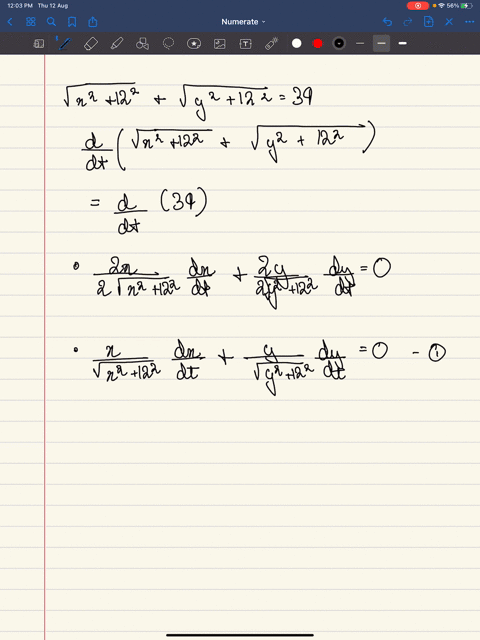 12:03 PM Thu 12 Aug
56%
Numerate
√(x² + 12²) + √(y² + 12²) = 39
d/dt (√(x² + 12²) + √(y² + 12²))
= d/dt (39)
• 2x/(2√(x² + 12²)) dx/dt + 2y/(2√(y² + 12²)) dy/dt = 0
• x/√(x² + 12²) dx/dt + y/√(y² + 12²) dy/dt = 0 - ①